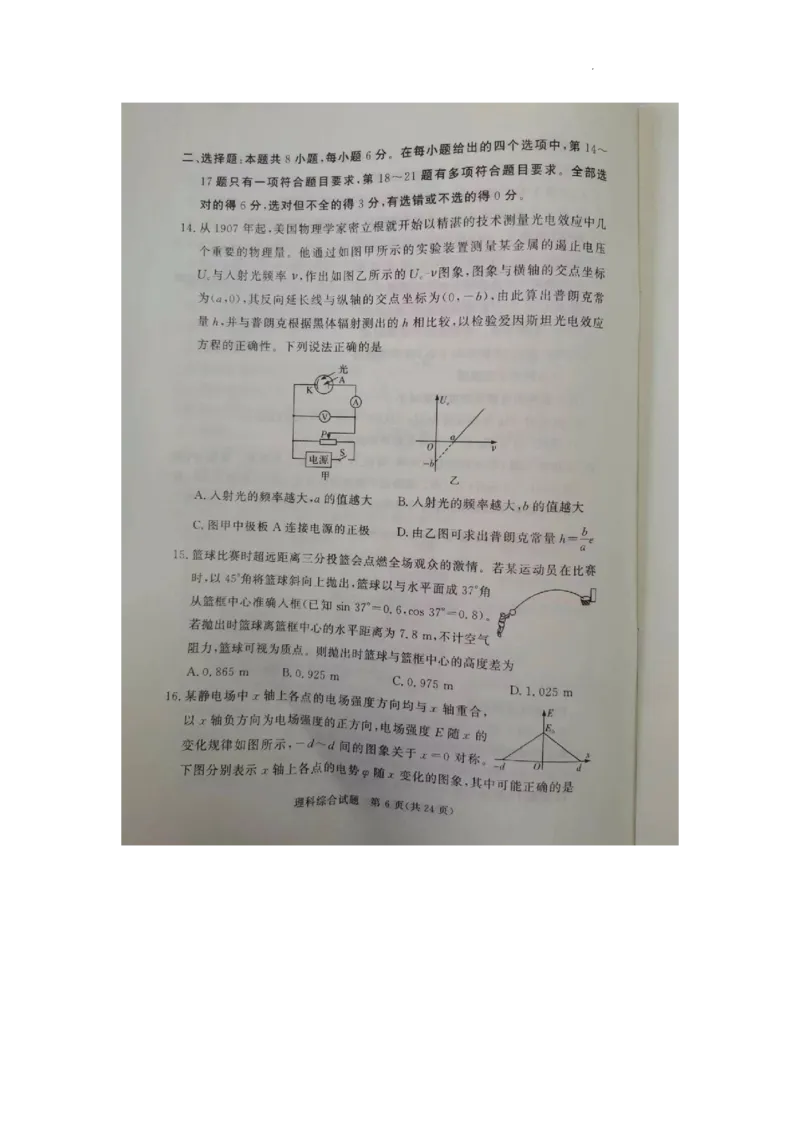 二、选择题:本题共8小题,每小题6分。在每小题给出的四个选项中,第14～
17题只有一项符合题目要求,第18～21题有多项符合题目要求。全部选
对的得6分,选对但不全的得3分,有选错或不选的得0分。
14.从1907年起,美国物理学家密立根就开始以精湛的技术测量光电效应中几
个重要的物理量。他通过如图甲所示的实验装置测量某金属的遏止电压
Uc与入射光频率ν,作出如图乙所示的Uc-ν图象,图象与横轴的交点坐标
为(a,0),其反向延长线与纵轴的交点坐标为(0,-b),由此算出普朗克常
量h,并与普朗克根据黑体辐射测出的h相比较,以检验爱因斯坦光电效应
方程的正确性。下列说法正确的是
光
K A
A
V
P
电源 S
甲
Uc
O a ν
-b
乙
A.入射光的频率越大,a的值越大 B.入射光的频率越大,b的值越大
C.图甲中极板A连接电源的正极 D.由乙图可求出普朗克常量h=b/a e
15.篮球比赛时超远距离三分投篮会点燃全场观众的激情。若某运动员在比赛
时,以45°角将篮球斜向上抛出,篮球以与水平面成37°角
从篮框中心准确入框(已知sin 37°=0.6,cos 37°=0.8)。
若抛出时篮球离篮框中心的水平距离为7.8 m,不计空气
阻力,篮球可视为质点。则抛出时篮球与篮框中心的高度差为
A.0.865 m B.0.925 m C.0.975 m D.1.025 m
16.某静电场中x轴上各点的电场强度方向均与x轴重合,
以x轴负方向为电场强度的正方向,电场强度E随x的
变化规律如图所示,-d～d间的图象关于x=0对称。
下图分别表示x轴上各点的电势φ随x变化的图象,其中可能正确的是
E
E₀
-d O d x
理科综合试题 第6页(共24页)